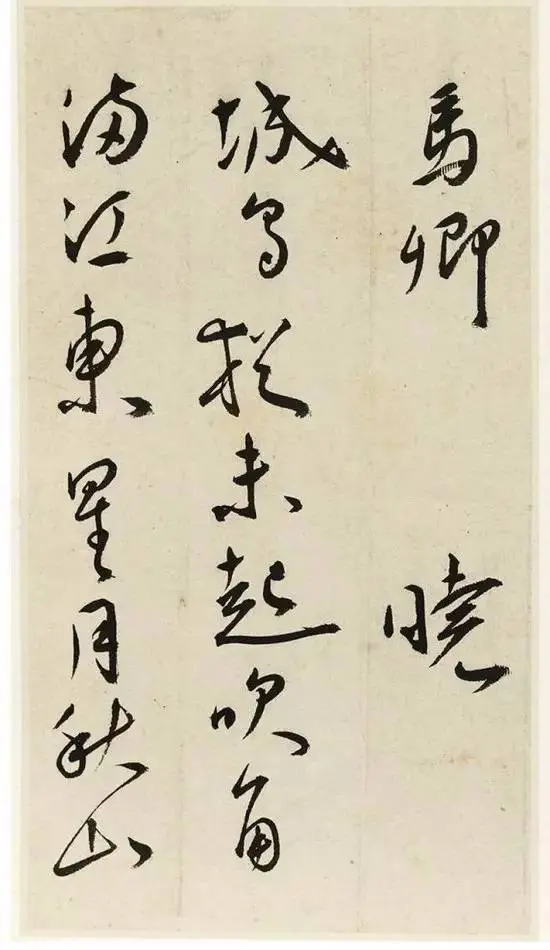 馬卿 曉
城烏猶未起吹角
滿江東星月秋山